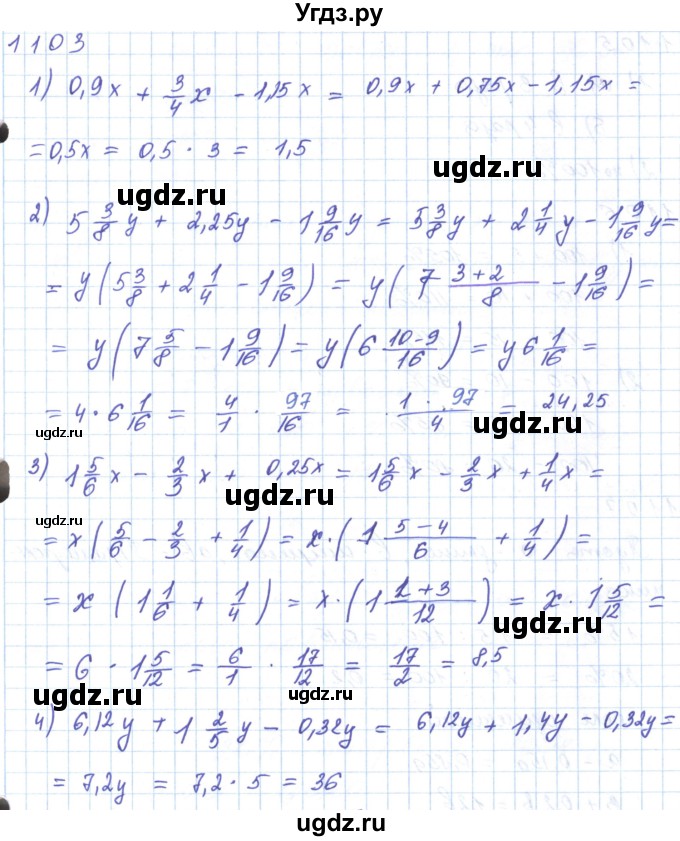 Угдз.ру
1103
1) 0,9x + 3/4 x - 1,15x = 0,9x + 0,75x - 1,15x =
= 0,5x = 0,5 · 3 = 1,5
ugdz.ru
ugdz.ru
2) 5 3/8 y + 2,25y - 1 9/16 y = 5 3/8 y + 2 1/4 y - 1 9/16 y =
= y(5 3/8 + 2 1/4 - 1 9/16) = y(7 3+2/8 - 1 9/16) =
= y(7 5/8 - 1 9/16) = y(6 10-9/16) = y 6 1/16 =
= 4 · 6 1/16 = 4/1 · 97/16 = 1 · 97/4 = 24,25
ugdz.ru
ugdz.ru
3) 1 5/6 x - 2/3 x + 0,25x = 1 5/6 x - 2/3 x + 1/4 x =
ugdz.ru
= x(5/6 - 2/3 + 1/4) = x · (1 5-4/6 + 1/4) =
= x (1 1/6 + 1/4) = x · (1 2+3/12) = x · 1 5/12 =
ugdz.ru
= 6 · 1 5/12 = 6/1 · 17/12 = 17/2 = 8,5
ugdz.ru
ugdz.ru
4) 6,12y + 1 2/5 y - 0,32y = 6,12y + 1,4y - 0,32y =
= 7,2y = 7,2 · 5 = 36
ugdz.ru
ugdz.ru